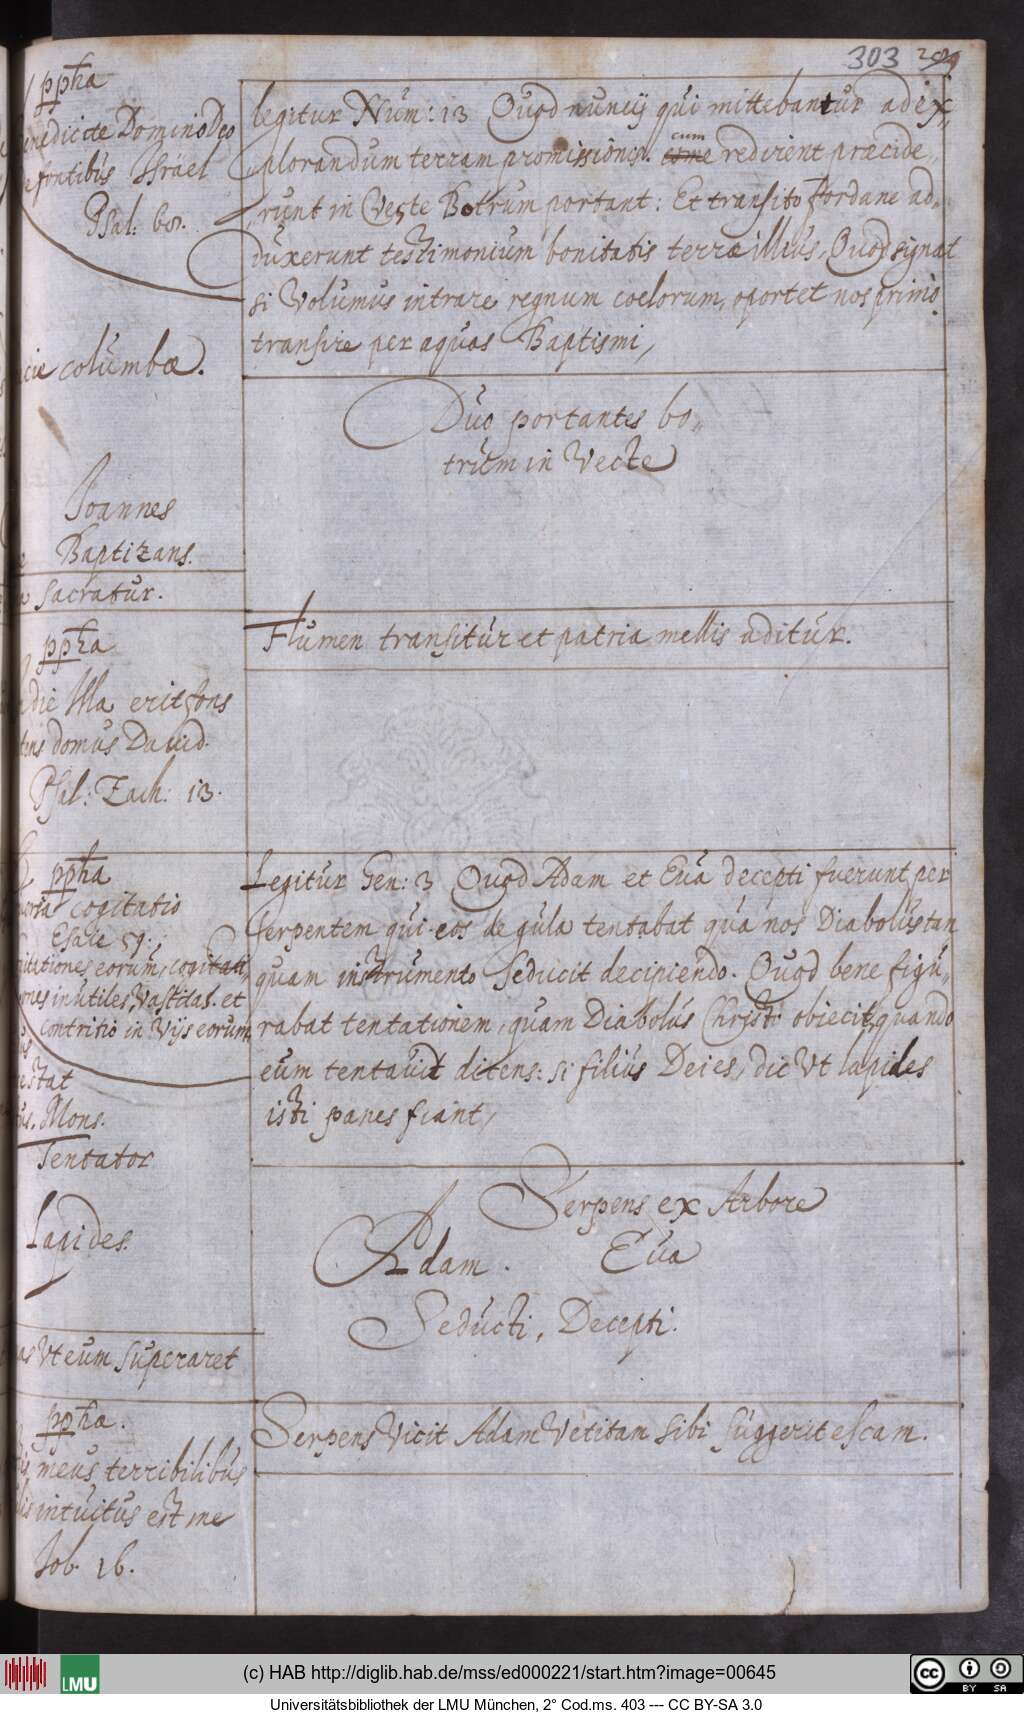 303 209
ppha
enedicite Domino Deo
e fontibus Israel
Psal: 68.
legitur Num: 13 Quod nuncij qui mittebantur ad ex„
plorandum terram promissionis. cum redirent præcide„
runt in Veste Botrum portant: Et transito Jordane ad„
duxerunt testimonium bonitatis terræ illius, Quod signat
si Volumus intrare regnum coelorum, oportet nos primò
transire per aquas Baptismi,
cie columbæ.
Joannes
Baptizans.
Duo portantes bo„
trum in Vecte
a sacratur.
Flumen transitur et patria mellis aditur.
ppha
die Illa erit fons
tens domus Dauid.
Psal: Zach: 13.
ppha
cogitatio
Esaie 59:,
gitationes eorum, cogitati
ones inutiles, Vastitas. et
contritio in Vijs eorum,
Legitur Gen: 3 Quod Adam et Eua decepti fuerunt per
serpentem qui eos de gula tentabat qua nos Diabolus tan
quam instrumento seducit decipiendo. Quod bene figu„
rabat tentationem, quam Diabolus Christo obiecit, quando
eum tentauit ditens: si filius Dei es, dic Vt lapides
isti panes fiant,
estat
us. Mons.
Tentator
Lapides.
Serpens ex Arbore
Adam. Eua
Seducti, Decepti.
as Vt eum superaret
Serpens Vicit Adam Vetitam sibi suggerit escam.
ppha.
meus terribilibus
is intuitus est me
Job. 16.
(c) HAB http://diglib.hab.de/mss/ed000221/start.htm?image=00645
LMU
cc BY SA
Universitätsbibliothek der LMU München, 2° Cod.ms. 403 --- CC BY-SA 3.0